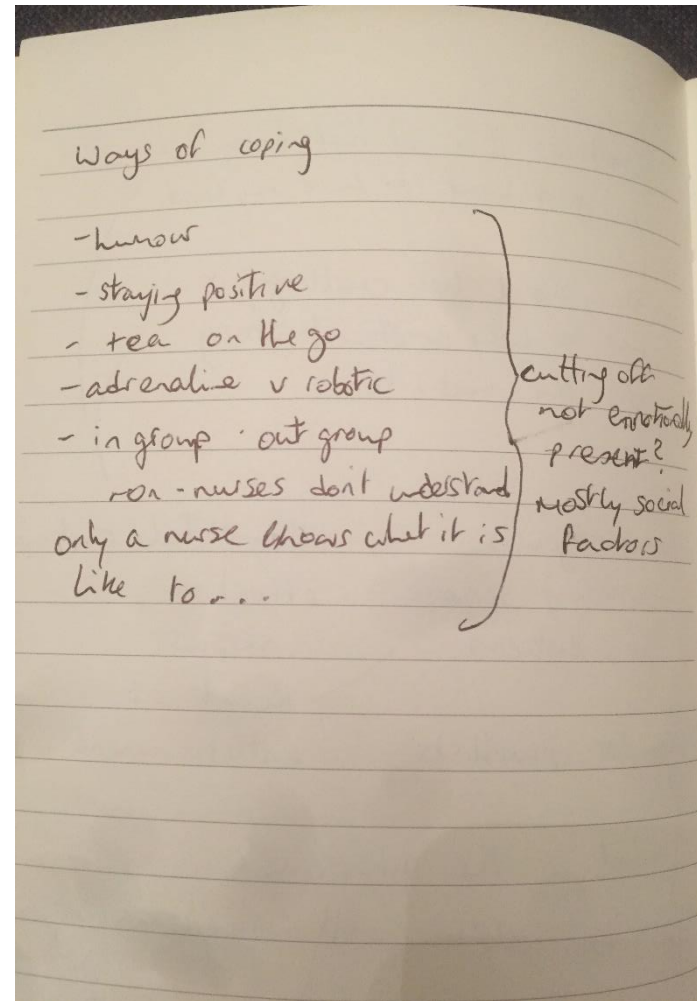 Ways of coping
- humour
- staying positive
- tea on the go
- adrenaline v robotic
- in group · out group
non-nurses dont understand
only a nurse knows what it is
like to...
cutting off
not emotionally
present?
mostly social
factors